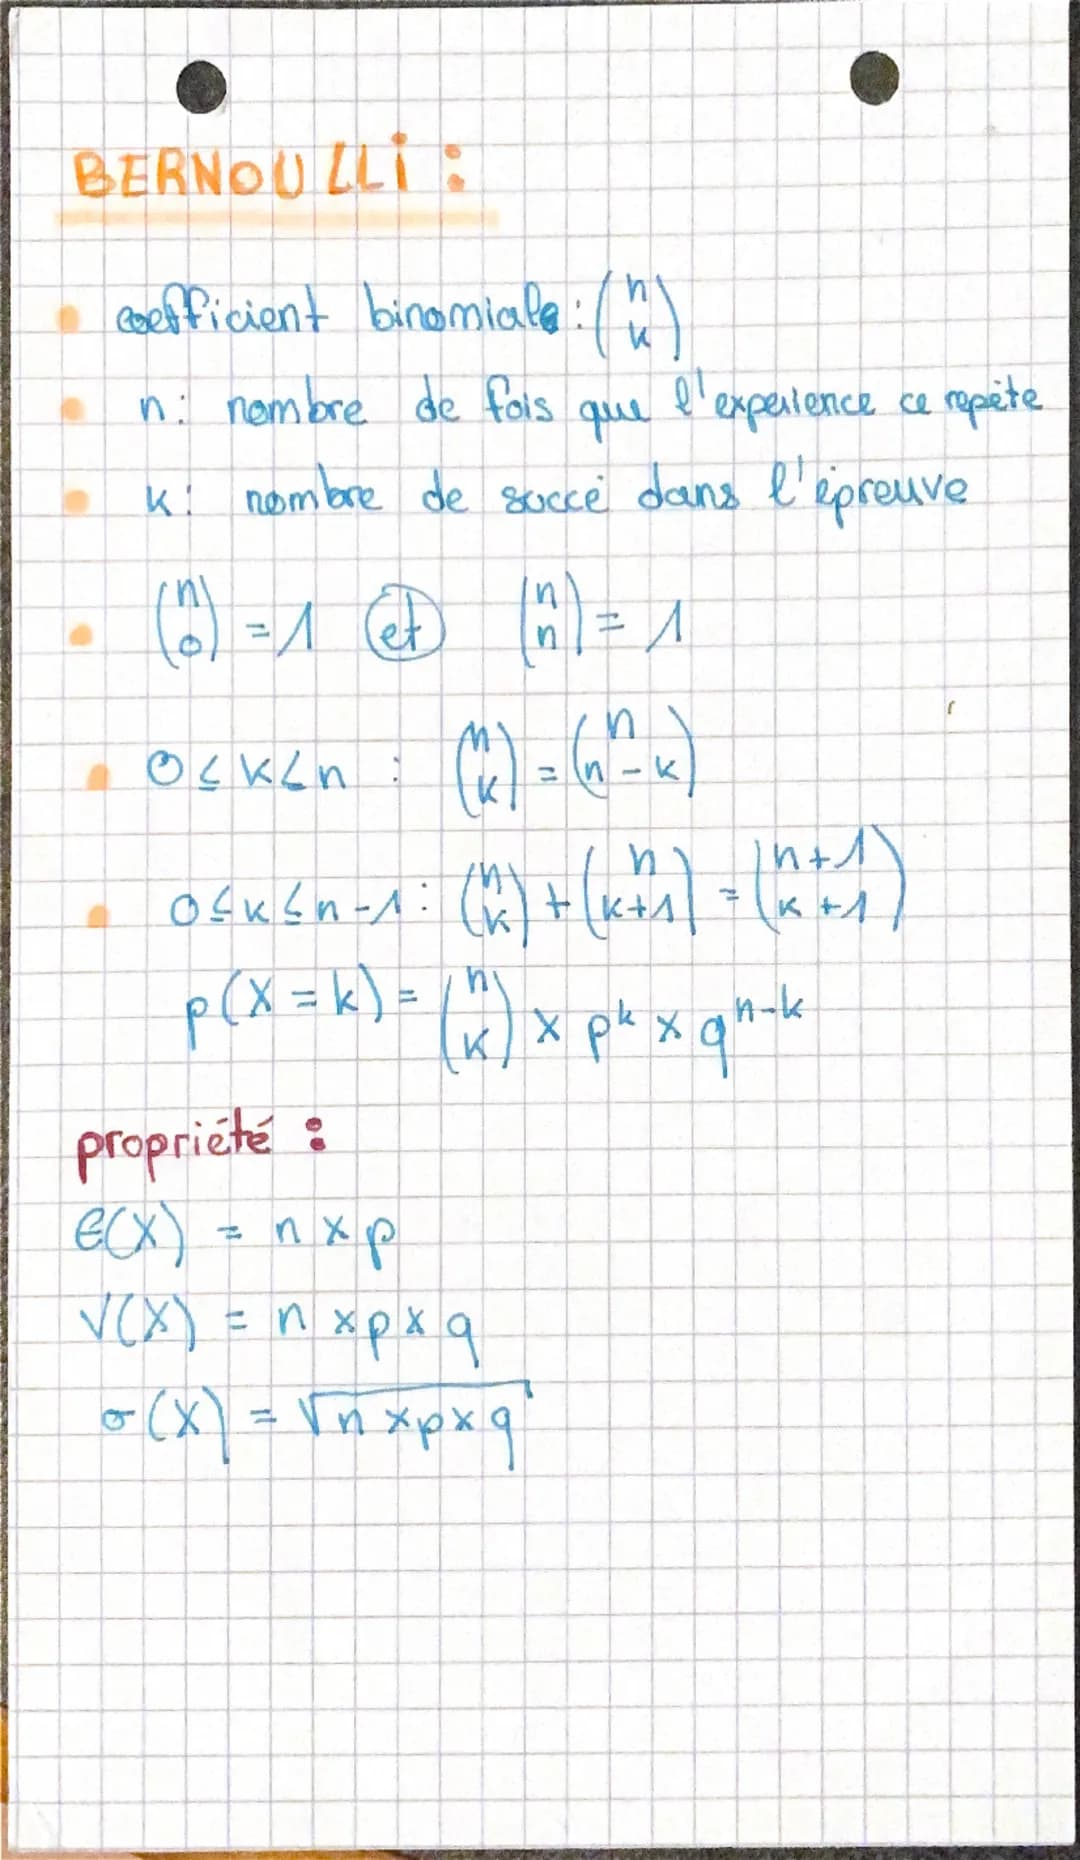 BERNOULLI :
coefficient binomiale : (n k)
n : nombre de fois que l'experience ce repète
k : nombre de succé dans l'épreuve
(n 0) = 1 et (n n) = 1
0 ≤ k < n : (n k) = (n n-k)
0 ≤ k ≤ n-1 : (n k) + (n k+1) = (n+1 k+1)
p(X = k) = (n k) × p^k × q^n-k
propriété :
E(X) = n × p
V(X) = n × p × q
σ(X) = √n × p × q